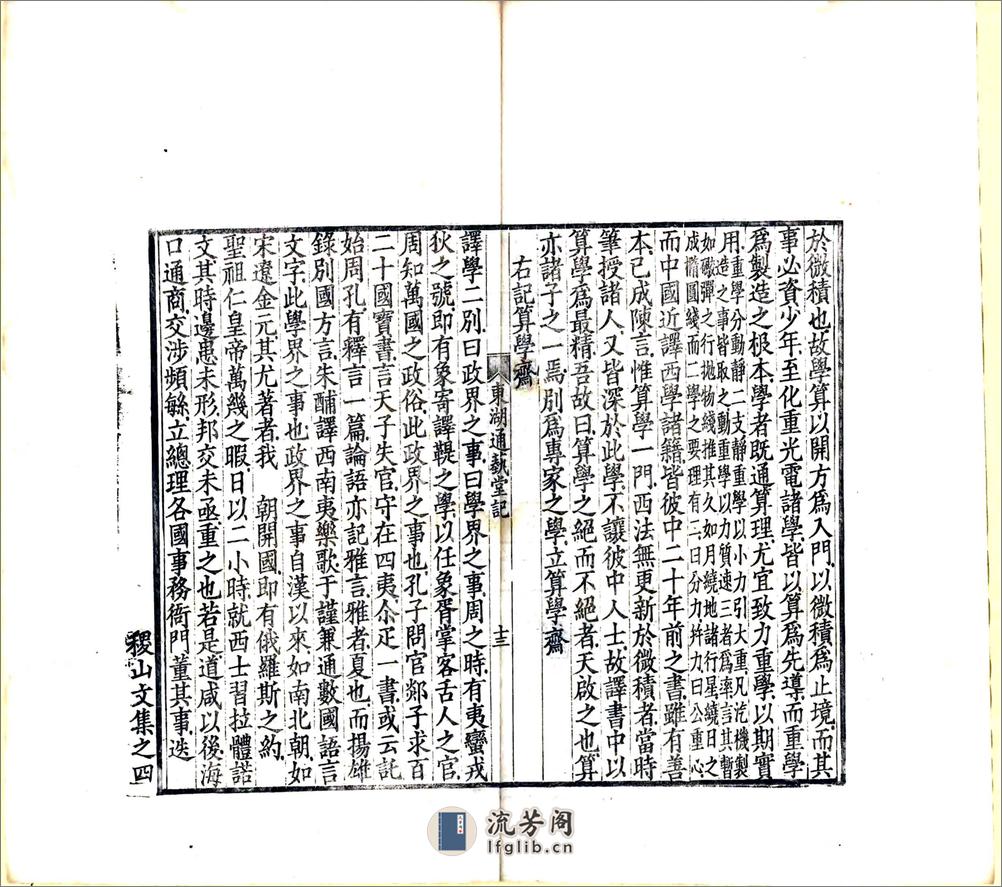 於微積也故學算以開方爲入門以微積爲止境而其
事必資少年至化重光電諸學皆以算爲先導而重學
爲製造之极本學者既通算理尤宜致力重學以期實
用重學分動靜二支靜重學以小力引大重凡汽機製
造之事皆取之動重學以力質速三者爲率言其暫
如礮彈之行拋物綫推其久如月繞地諸行星繞日之
成橢圓綫而二學之要理有二曰分力幷力曰公重心
而中國近譯西學諸籍皆彼中二十年前之書雖有善
本已成陳言惟算學一門西法無更新於微積者當時
筆授諸人又皆深於此學不讓彼中人士故譯書中以
算學爲最精吾故曰算學之絕而不絕者天啟之也算
亦諸子之一焉別爲專家之學立算學齋
右記算學齋
東湖通藝堂記
十三
譯學二別曰政界之事曰學界之事周之時有夷蠻戎
狄之號即有象寄譯鞮之學以任象胥掌客舌人之官
周知萬國之政俗此政界之事也孔子問官郯子求百
二十國寶書言天子失官守在四夷尒疋一書或云託
始周孔有釋言一篇論語亦記雅言雅者夏也而揚雄
錄別國方言朱酺譯西南夷樂歌于謹兼通數國語言
文字此學界之事也政界之事自漢以來如南北朝如
宋遼金元其尤著者我 朝開國即有俄羅斯之約
聖祖仁皇帝萬幾之暇日以二小時就西士習拉體諾
文其時邊患未形邦交未亟重之也若是道咸以後海
口通商交涉頻緐立總理各國事務衙門董其事迭
稷山文集之四
流芳阁
lfglib.cn